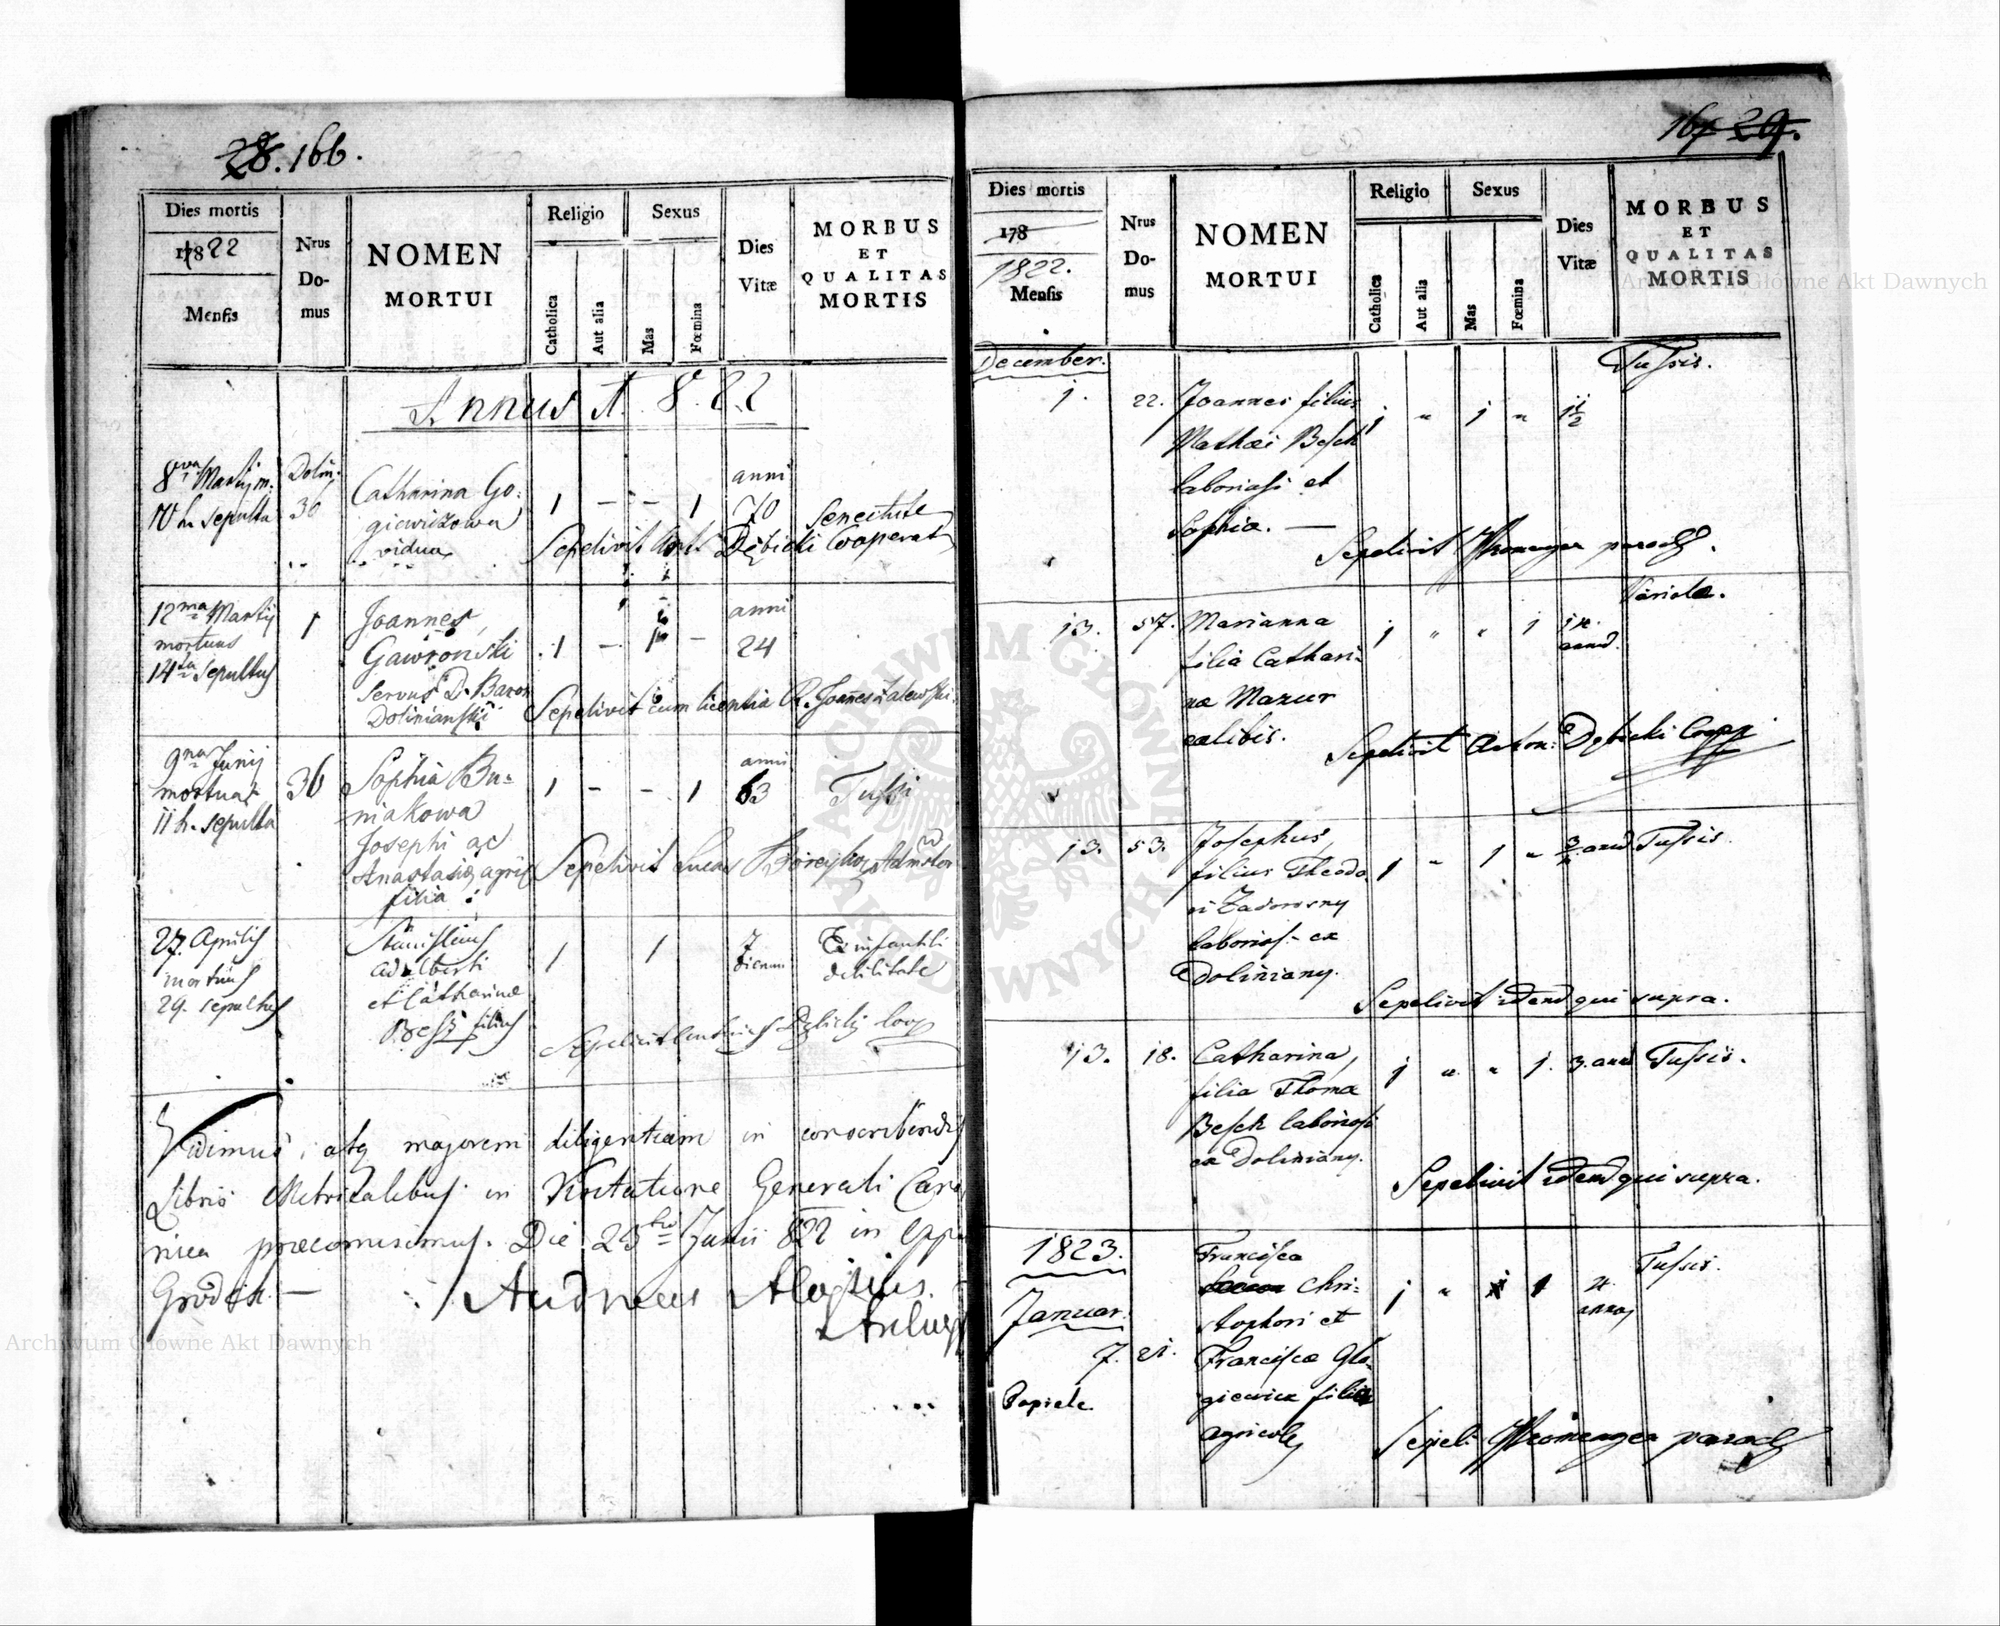 28. 166.
Dies mortis
1822
Mensis
Nrus
Do-
mus
NOMEN
MORTUI
Religio
Catholica
Aut alia
Sexus
Mas
Fœmina
Dies
Vitæ
MORBUS
ET
QUALITAS
MORTIS
Annus 1822
8va Martij m.
10 h. sepulta
Dolin:
36
Catharina Go-
giewiczowa
vidua
1 — — 1
anni
70
Senectute
Sepelivit Ant Dębicki Cooperat
12ma Martij
mortuus
14ta sepultus
1
Joannes
Gawronski
Servus D. Baron
Dolinianski
1 — 1 —
anni
24
Sepelivit cum licentia R. Joannes Zalewski
9na Junij
mortua
11 h. sepulta
36
Sophia Bu-
niakowa
Josephi ac
Anastasiæ agric
filia
1 — — 1
anni
63
Tussi
Sepelivit Lucas
27. Aprilis
mortuus
29. sepultus
Stanislaus
Adalberti
et Catharinæ
Besz filius
1 1
7
dierum
Ex infantili
debilitate
Sepelivit Antonius Dębicki Coop
Vidimus, atq majorem diligentiam in conscribendis
Libris Metricalibus in Visitatione Generali Cano
nica præcomisimus. Die 25 Junii 822 in Opp
Grodek —
Andreas Aloysius
167 29.
Dies mortis
178
1822.
Mensis
Nrus
Do-
mus
NOMEN
MORTUI
Religio
Catholica
Aut alia
Sexus
Mas
Fœmina
Dies
Vitæ
MORBUS
ET
QUALITAS
MORTIS
December.
1.
22.
Joannes filius
Mathæi Besch
laboriosi et
Sophiæ. —
1 " 1 "
1 1/2
Tussis.
Sepelivit paroch.
13.
57.
Marianna
filia Cathari-
næ Mazur
cælibis.
1 " " 1
Variola.
Sepelivit Anton: Dębicki Coop
13.
53.
Josephus,
filius Theodo
ri Zadorozny
laborios. ex
Doliniany.
1 " 1 "
Tussis.
Sepelivit idem qui supra.
13.
18.
Catharina,
filia Thomæ
Besch laboriosi
ex Doliniany.
1 " " 1.
3. ann
Tussis.
Sepelivit idem qui supra.
1823.
Januar.
7.
21.
Popiele
Francisca
Chri-
stophori et
Franciscæ Glo-
giewicz filia
agricolæ
1 " 1
Tussis.
Sepeli paroch
Archiwum Główne Akt Dawnych
Archiwum Główne Akt Dawnych
ARCHIWUM GŁÓWNE AKT DAWNYCH